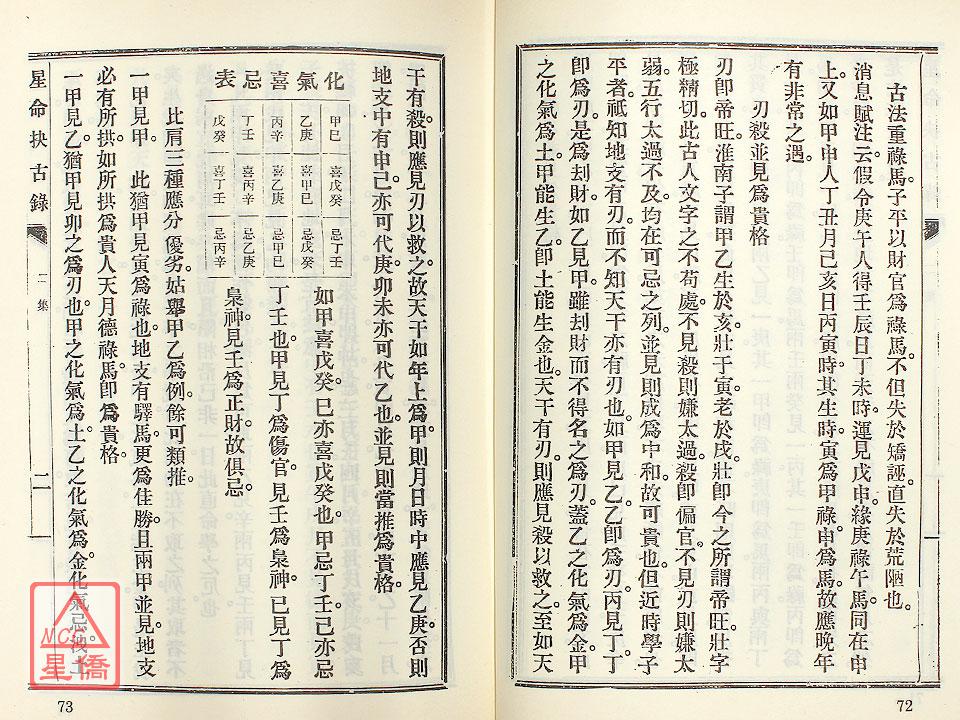 古法重祿馬子平以財官為祿馬不但失於矯誣直失於荒陋也。
消息賦注云假令庚午人得壬辰日丁未時運見戊申緣庚祿午馬同在申
上又如甲申人丁丑月己亥日丙寅時其生時寅為甲祿申為馬故應晚年
有非常之遇。
刃殺並見為貴格
刃卽帝旺淮南子謂甲乙生於亥壯于寅老於戌壯卽今之所謂帝旺壯字
極精切此古人文字之不苟處不見殺則嫌太過殺卽偏官不見刃則嫌太
弱五行太過不及均在可忌之列並見則成為中和故可貴也但近時學子
平者祗知地支有刃而不知天干亦有刃也如甲見乙乙卽為刃丙見丁丁
卽為刃是為刦財如乙見甲雖刦財而不得名之為刃蓋乙之化氣為金甲
之化氣為土甲能生乙卽土能生金也天干有刃則應見殺以救之至如天
72
干有殺則應見刃以救之故天干如年上為甲則月日時中應見乙庚否則
地支中有申己亦可代庚卯未亦可代乙也並見則當推為貴格。
化氣喜忌表
甲巳 喜戊癸 忌丁壬
乙庚 喜甲巳 忌戊癸
丙辛 喜乙庚 忌甲巳
丁壬 喜丙辛 忌乙庚
戊癸 喜丁壬 忌丙辛
如甲喜戊癸巳亦喜戊癸也甲忌丁壬己亦忌
丁壬也甲見丁為傷官見壬為梟神已見丁為
梟神見壬為正財故俱忌。
比肩三種應分優劣姑舉甲乙為例餘可類推。
一甲見甲 此猶甲見寅為祿也地支有驛馬更為佳勝且兩甲並見地支
必有所拱如所拱為貴人天月德祿馬卽為貴格
一甲見乙猶甲見卯之為刃也甲之化氣為土乙之化氣為金化氣忌洩土
星命抉古錄
二集
二一
73
NCC
星僑